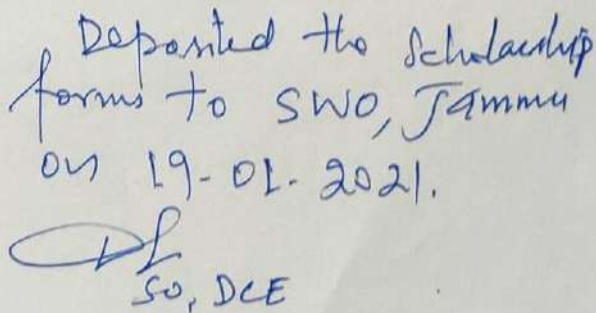 Deposited the Scholarship
forms to SWO, Jammu
on 19-01-2021.
SO, DCE